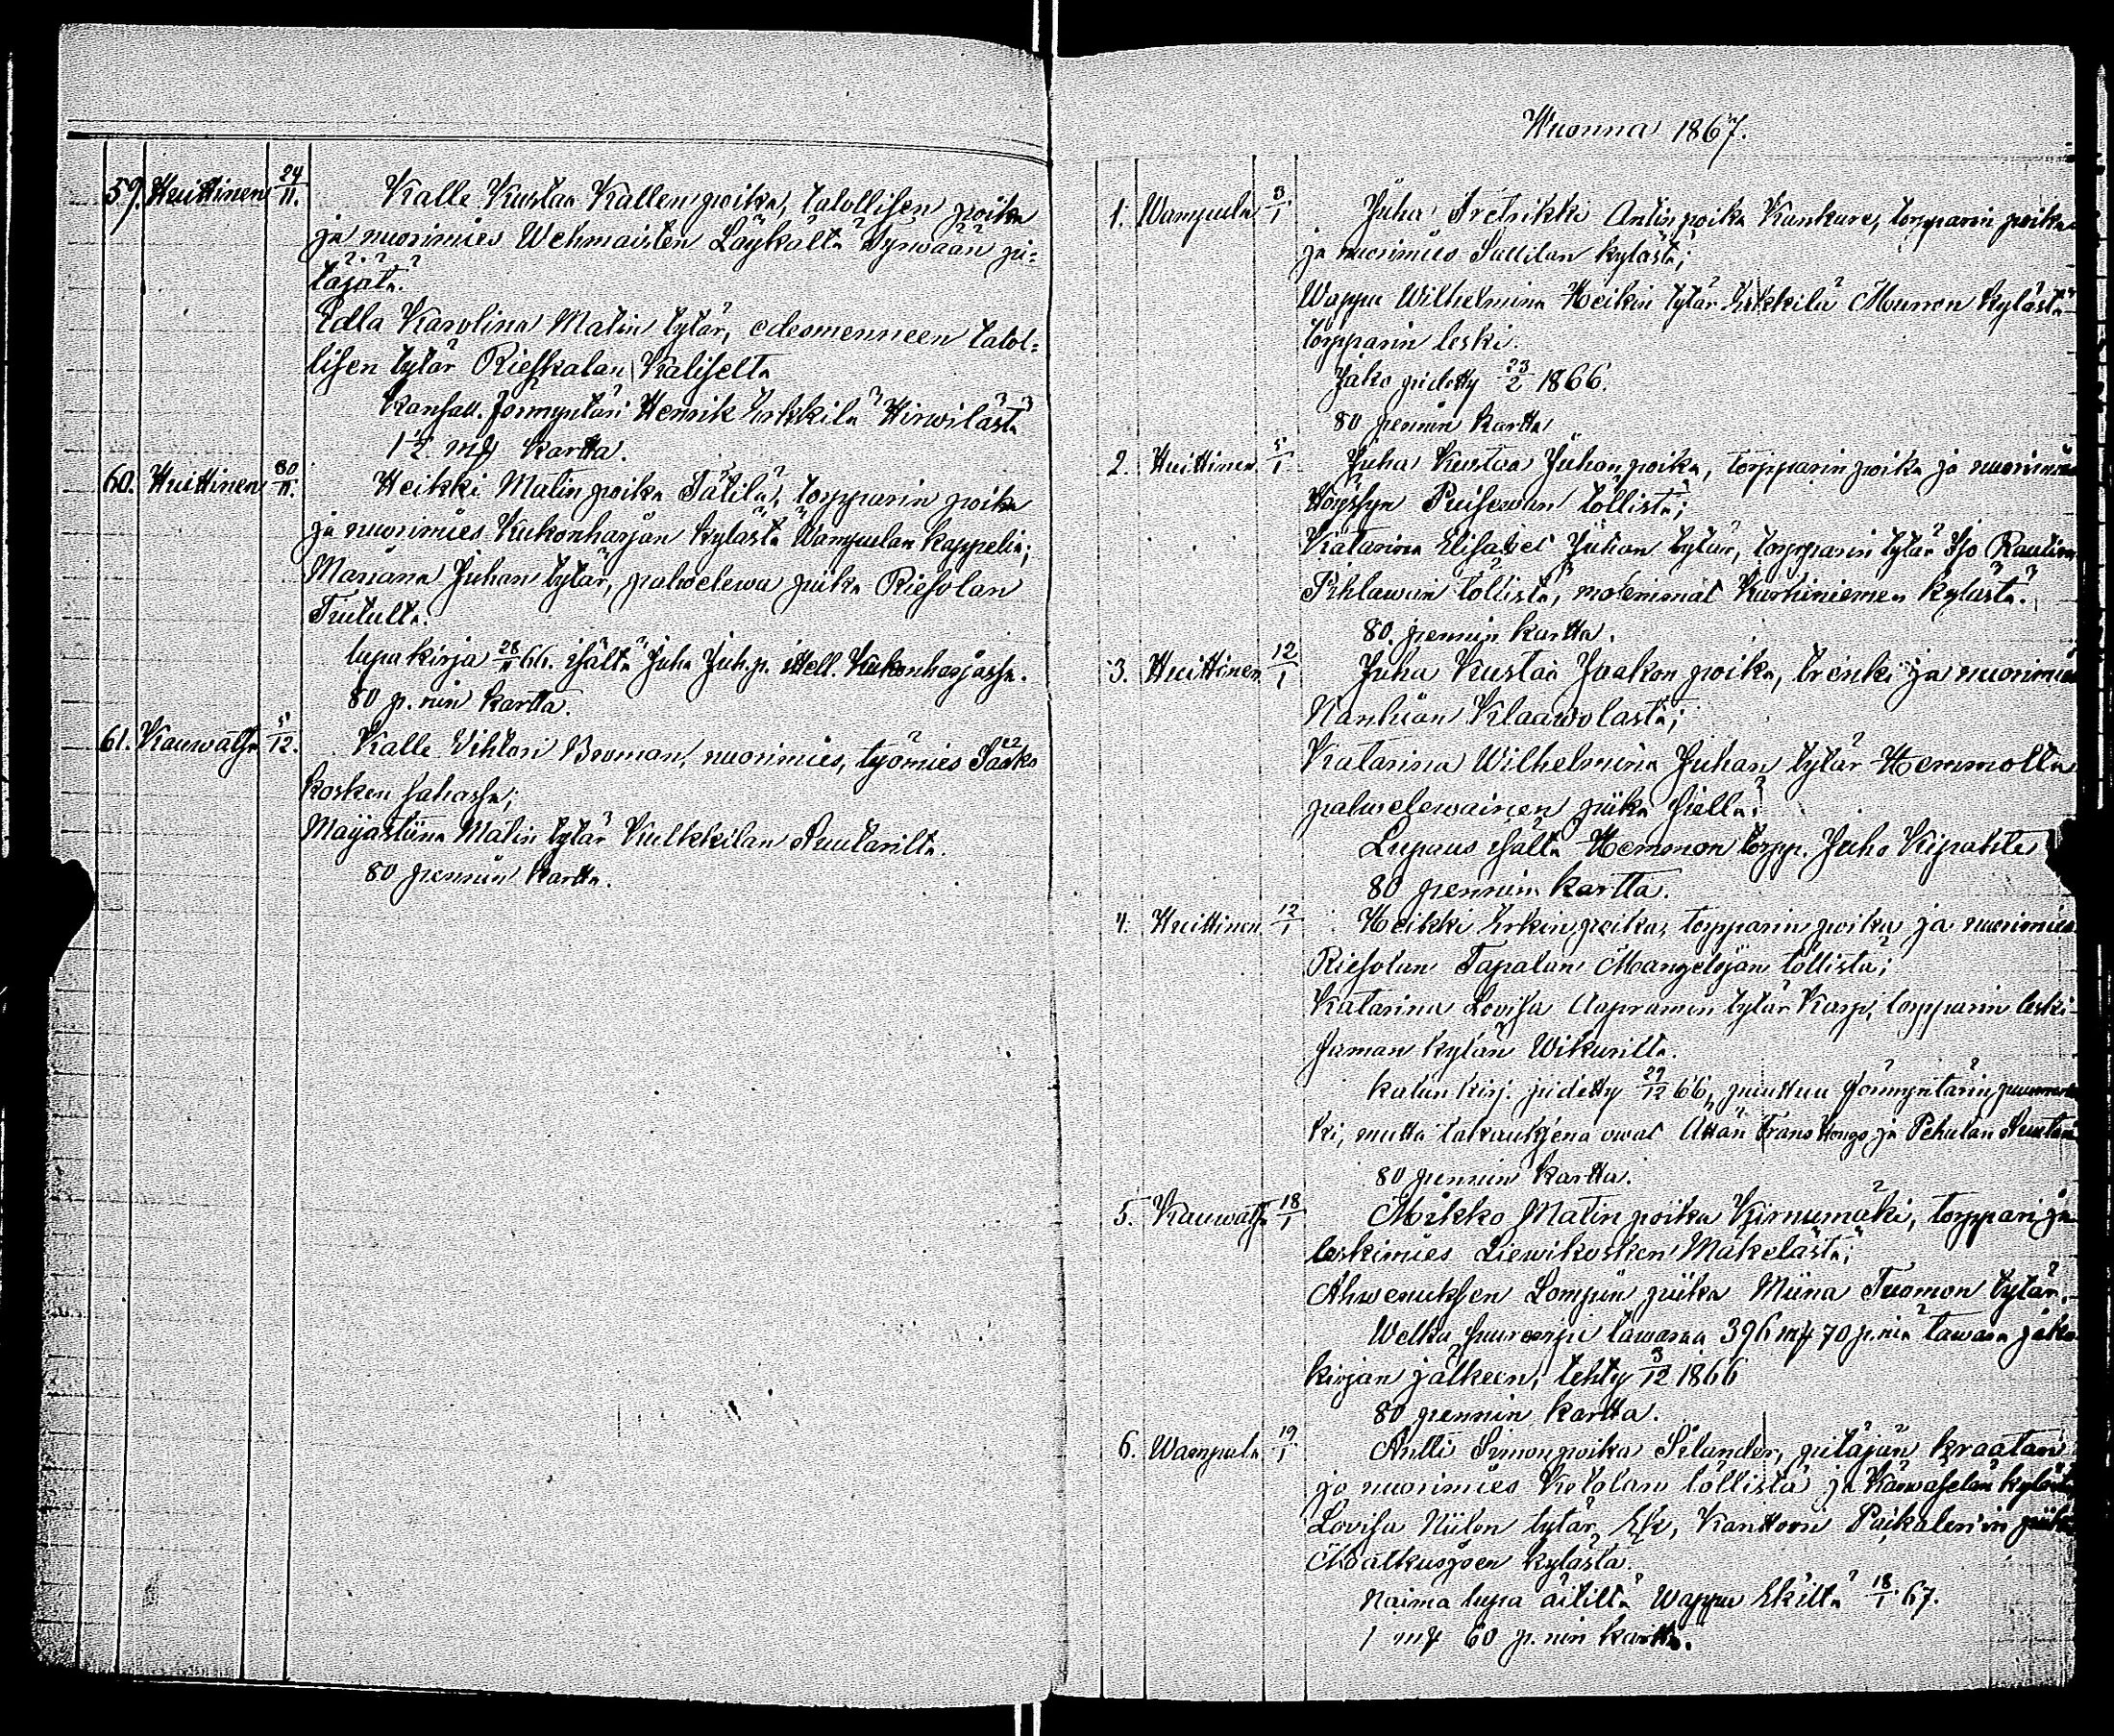 59. Huittinen 24/11. Kalle Kustaa Kallen poika, talollisen poika
ja nuorimies Wehmaisten Löykältä Tyrwään pi-
täjätä.
Edla Karolina Matin tytär, edesmenneen talol-
lisen tytär Rieskalan Kaliselta
Konsall. förmyntäri Henrik Erkkilä Hirwilästä
1 1/2 mk kartta.
60. Huittinen 30/11. Heikki Matin poika Tätilä, torpparin poika
ja nuorimies Kukonharjan kylästä Wampulan kappelia;
Mariana Juhan tytär, palwelewa piika Riesolan
Tutulta.
lupakirja 28/11 66. isältä Juha Juh.p. itsell. Kukonharjassa.
80 p.nin kartta.
61. Kauwatsa 5/12. Kalle Vihtori Broman, nuorimies, työmies Sääks
kosken sahassa;
Majastiina Matin tytär Kulkkilan Suutarilta.
80 pennin kartta.
Wuonna 1867.
1. Wampula 3/1 Juha Fretrikki Antin poika Kankare, torpparin poika
ja nuorimies Sallilan kylästä;
Wappu Wilhelmina Heikin tytär Erkkilä Murron kylästä
torpparin leski.
Jako pidetty 23/2 1866.
80 pennin kartta
2. Huittinen 5/1 Juha Kustaa Juhan poika, torpparin poika ja nuorimies
Puisewan töllistä;
Katarina Elisabet Juhan tytär, torpparin tytär Iso Rautun
Pihlawiin töllistä, molemmat Kurkiniemen kylästä.
80 pennin kartta.
3. Huittinen 12/1 Juha Kustaa Jaakon poika, trenki ja nuorimies
Nanhian Klaawolasta;
Katarina Wilhelmina Juhan tytär Hemmolta
palwelewainen piika siellä.
Lupaus isältä Hemmon torpp. Juho Kipahti
80 pennin kartta.
4. Huittinen 12/1 Heikki Erkin poika, torpparin poika ja nuorimies
Riesolan Tapalan Mangelojan töllistä;
Katarina Lovisa Aapramin tytär Karp, torpparin leski
Jaman kylän Wikurilta.
kalun kirj. pidetty 29/12 66, puuttuu förmyntärin puumer
ki, mutta takauksena owat Ätän Frans Hongo ja Pehulan Suutari
80 pennin kartta.
5. Kauwatsa 18/1 Mikko Matin poika Kirnumäki, torppari ja
leskimies Liewikosken Mäkelästä;
Ahwenuksen Lompin piika Miina Tuomon tytär.
Welka suurempi tawaraa 396 mk 70 p.niä tawara jako
kirjan jälkeen, tehty 3/12 1866
80 pennin kartta.
6. Wampula 19/1 Antti Simon poika Silander, pitäjän kraatari
ja nuorimies Kotolan töllistä ja Kanwaselan kylästä
Lovisa Niilon tytär Ek, Kanttori Paikalenin piika
Matkusjoen kylästä.
Naima lupa äitiltä Wappu Ekiltä 18/1 67.
1 mk 60 p.nin kartta.